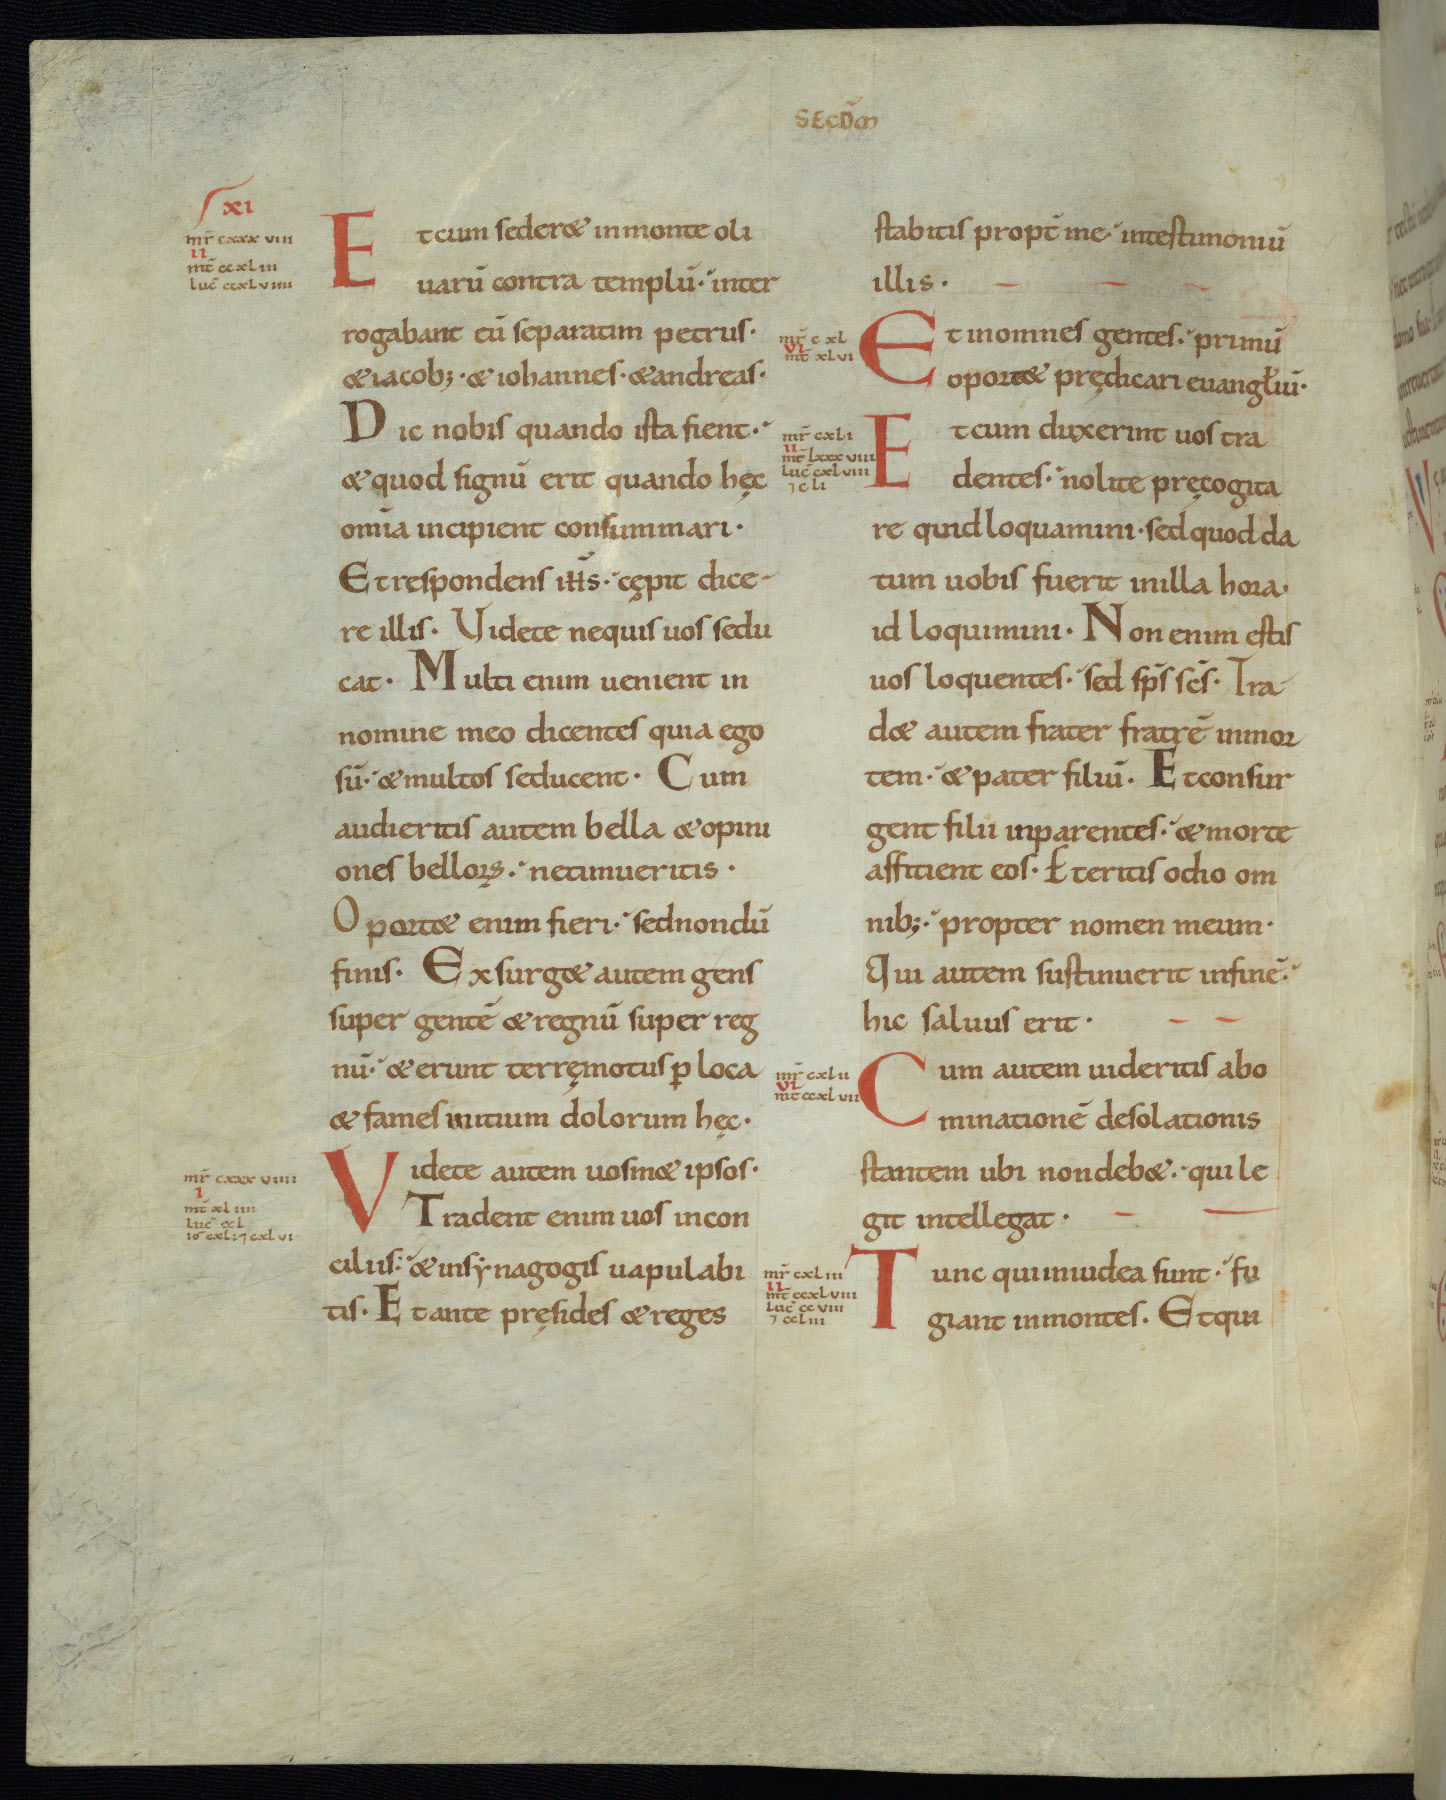 SECDM̄
XI
mr̄ cxxxviii
ii
mt̄ ccxliii
luc̄ ccxlviiii
Et cum sederet in monte oli
uarū contra templū· inter
rogabant eū separatim petrus·
& iacob; · & iohannes · & andreas·
Dic nobis quando ista fient·
& quod signū erit quando hęc
omīa incipient consummari·
Et respondens ih̄s· cępit dice-
re illis· Videte nequis uos sedu
cat· Multi enim uenient in
nomine meo dicentes quia ego
sū· & multos seducent· Cum
audieritis autem bella & opini
ones belloꝝ· ne timueritis·
Oport& enim fieri· sed nondū
finis· Exsurg& autem gens
super gentē & regnū super reg
nū· & erunt terręmotus ꝑ loca
& fames initium dolorum hęc·
mr̄ cxxxviiii
i
mt̄ xliiii
luc̄ ccl
io cxli ⁊ cxlvi
Videte autem uosm& ipsos·
Tradent enim uos in con
ciliis· & in synagogis uapulabi
tis· Et ante pręsides & reges
stabitis propt̄ me· in testimoniū
illis·
mr̄ cxl
vi
mt̄ xlvi
Et in omnes gentes· primū
oport& prędicari euangłiū·
mr̄ cxli
ii
mt̄ lxxxviii
luc̄ cxlviii
⁊ cli
Et cum duxerint uos tra
dentes· nolite pręcogita
re quid loquamini· sed quod da
tum uobis fuerit in illa hora·
id loquimini· Non enim estis
uos loquentes· sed sp̄s sc̄s· Tra
d& autem frater fratrē in mor
tem· & pater filiū· Et consur
gent filii in parentes· & morte
affitient eos· Et eritis odio om
nib;· propter nomen meum·
Qui autem sustinuerit in finē·
hic saluus erit·
mr̄ cxlii
vi
mt̄ ccxlvii
Cum autem uideritis abo
minationē desolationis
stantem ubi non deb&· qui le
git intellegat·
mr̄ cxliii
ii
mt̄ ccxlviii
luc̄ ccviii
⁊ ccliii
Tunc qui in iudea sunt· fu
giant in montes· Et qui